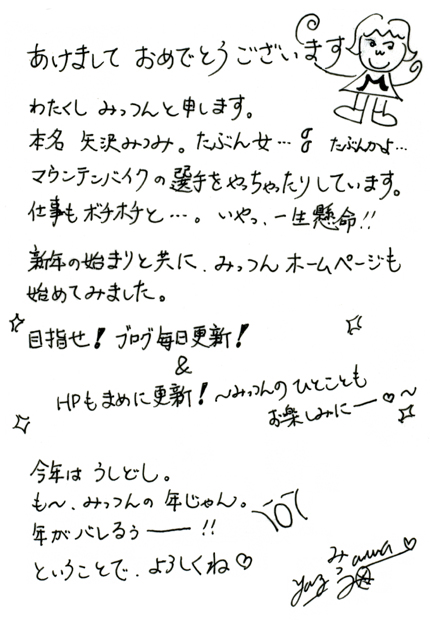 あけまして おめでとうございます
わたくし みっつんと申します。
本名 矢沢みつみ。たぶん女…
たぶんかよ…
マウンテンバイクの選手をやっちゃったりしています。
仕事もボチボチと…。いやっ、一生懸命!!
新年の始まりと共に、みっつん ホームページも
始めてみました。
目指せ!ブログ毎日更新!
&
HPもまめに更新!〜みっつんのひとことも
お楽しみにー♡〜
今年は うしどし。
も〜、みっつんの 年じゃん。
年がバレるぅ━━!!
ということで、よろしくね♡